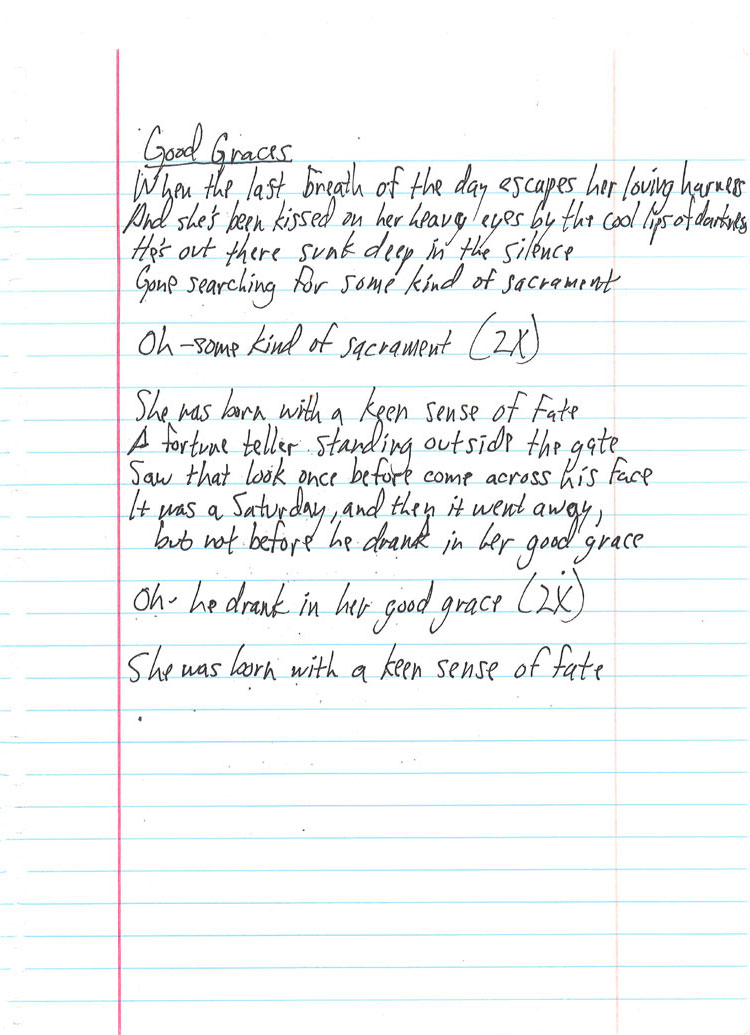 Good Graces
When the last breath of the day escapes her loving harness
And she's been kissed on her heavy eyes by the cool lips of darkness
He's out there sunk deep in the silence
Gone searching for some kind of sacrament
Oh - some kind of sacrament (2X)
She was born with a keen sense of Fate
A fortune teller standing outside the gate
Saw that look once before come across his face
It was a Saturday, and then it went away,
but not before he drank in her good grace
Oh - he drank in her good grace (2X)
She was born with a keen sense of fate